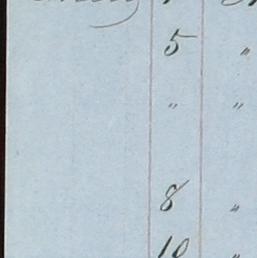 5 "
" "
8 "
10 "